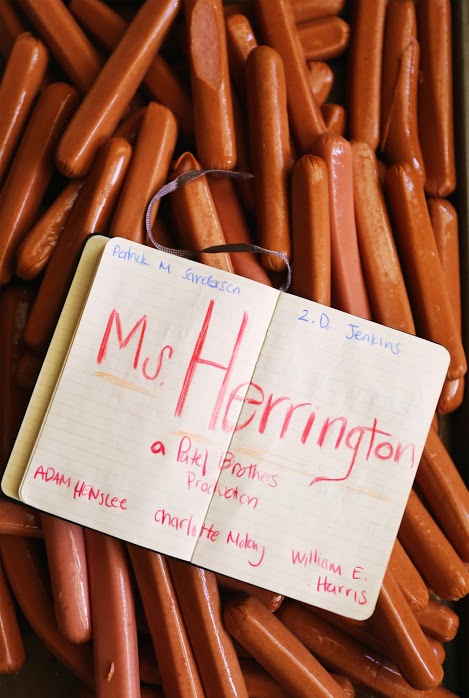 Patrick M Sanderson
Z.D. Jenkins
Ms. Herrington
a Patel Brothers
Production
ADAM HENSLEE
Charlotte
William E.
Harris